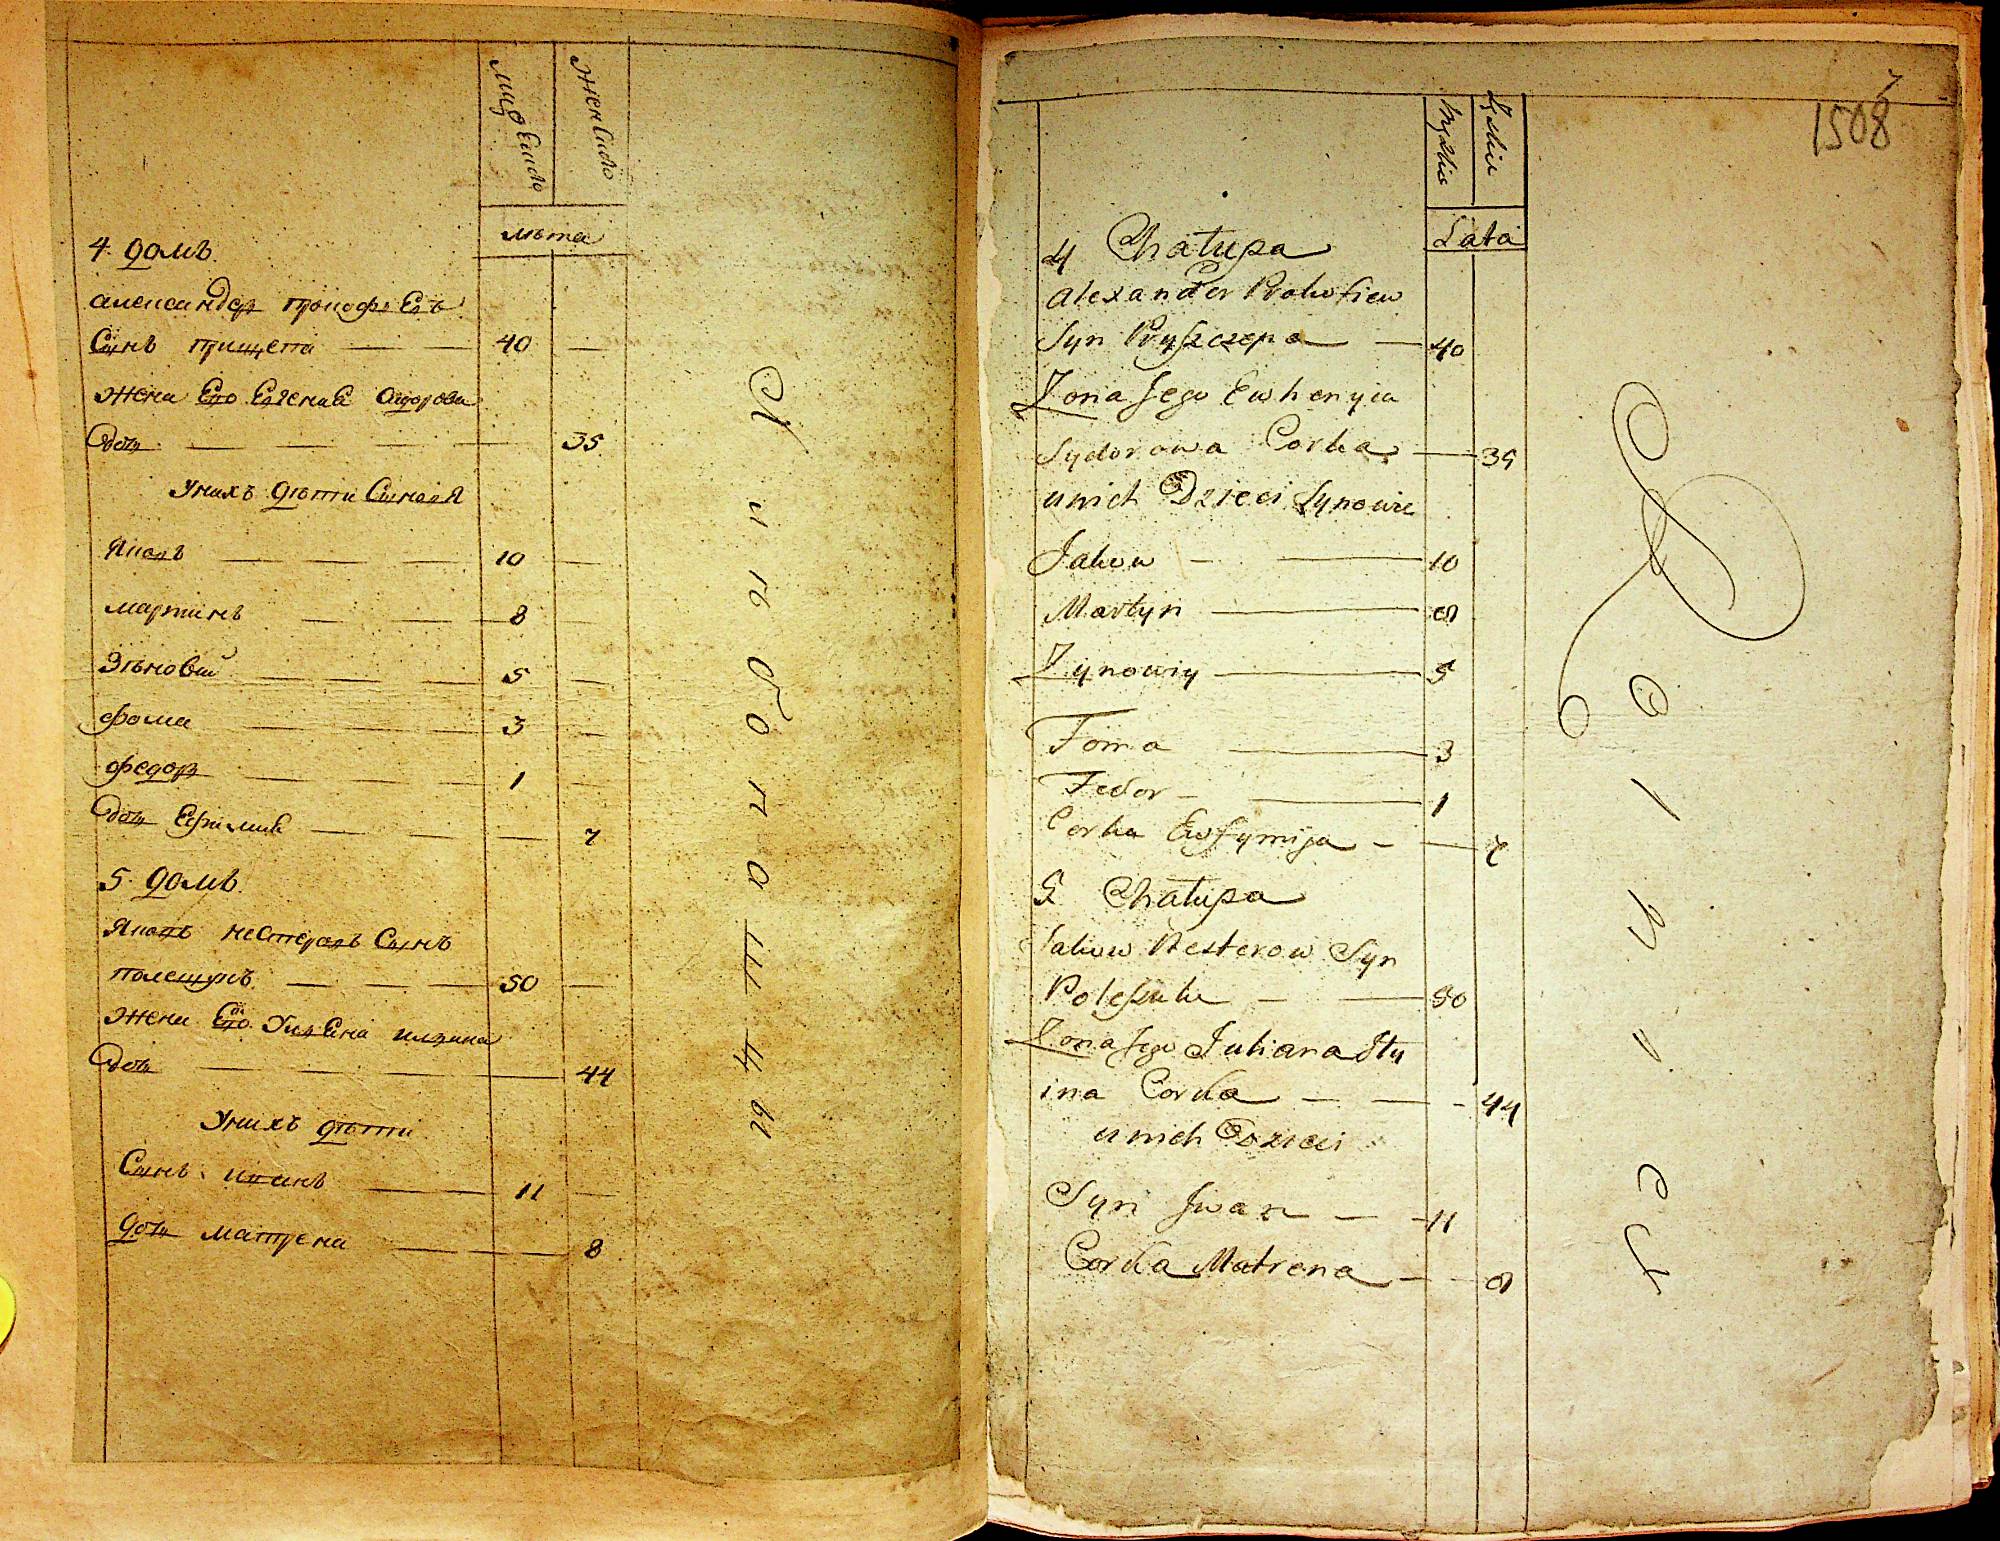 мужеско
женско
лѣта
4. домъ
александеръ прокофиевъ
Сынъ прищепа 40
жена Его Евгениа Сидорова
дочь 35
Унихъ дѣти Синовя
Яковъ 10
мартинъ 8
Зѣновий 5
фома 3
федоръ 1
дочь Ефимиа 7
5. домъ
Яковъ нестеровъ Сынъ
полещукъ 50
жена Его Улиена илина
дочь 44
Унихъ дѣти
Сынъ иванъ 11
дочь матрена 8
7
1508
Męzkie
Żeskie
Lata
4 Chałupa
Alexander Prokofiew
Syn Pryszczepa 40
Zona Jego Ewhenyia
Sydorowa Corka 35
unich Dzieci Synowie
Jakow 10
Martyn 8
Zynowiy 5
Foma 3
Fedor 1
Corka Ewfymija 7
5 Chałupa
Jakow Nesterow Syn
Poleszuk 50
Zona Jego Juliana Ily
ina Corka 44
unich Dzieci
Syn Iwan 11
Corka Matrena 8